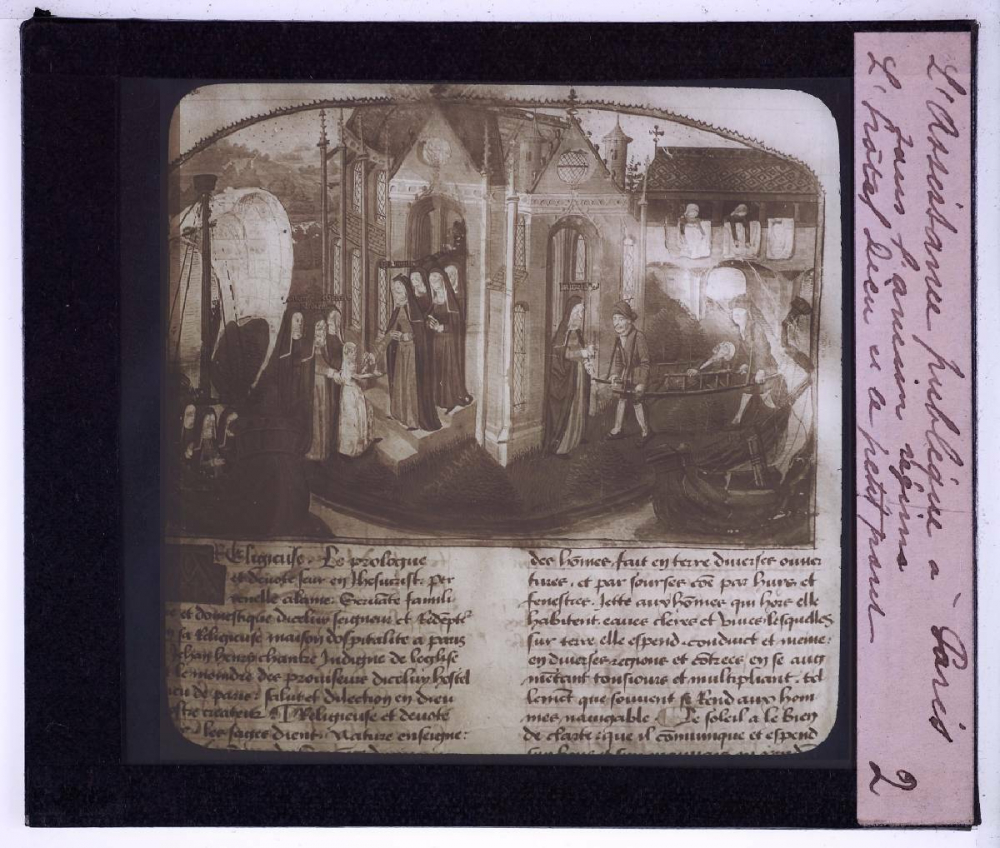 L'Assistance publique à Paris
sous l'ancien régime
L'hôtel Dieu et a petit pont
2
Religieuse. Le prologue
et devote seur en Jhesucrist. per
renelle alame. Servāte famili
et domestique diceluy seigneur et Rédēpte
sa Religieuse maison dospitalite a paris
Jehan henry chantre Indigne de leglise
le moindre des proviseurs diceluy hostel
dieu de paris: salut et dilection en dieu
createur Religieuse et devote
les sages dient: Nature enseigne:
des hōmes. fait en terre diverses ouver
tures. et par sourses cōe par huys. et
fenestres. Jette aux hōmes qui hors elle
habitent eaues cleres et vives. lesquelles
sur terre elle espend. conduict et meine:
en diverses regions et cōtrees en se aug
mētant tousiours et multipliant. tel
lemēt que souvent se Rend aux hom
mes navigable Le soleil a le bien
de clarte: que il cōmunique et espend